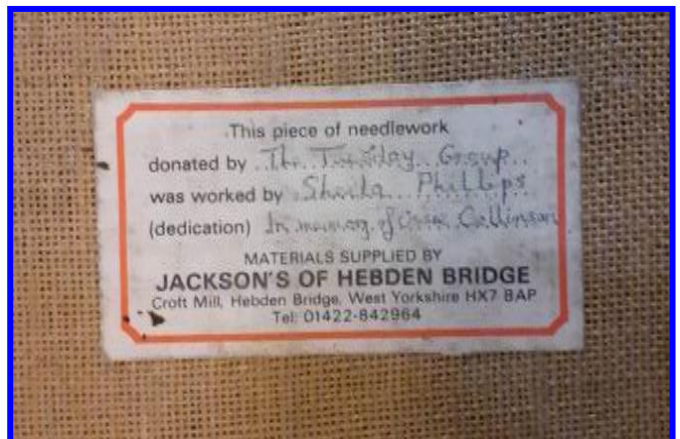 This piece of needlework
donated by The Tuesday Group
was worked by Sheila Phillips
(dedication) In memory of Collinson
MATERIALS SUPPLIED BY
JACKSON'S OF HEBDEN BRIDGE
Croft Mill, Hebden Bridge, West Yorkshire HX7 8AP
Tel: 01422-842964